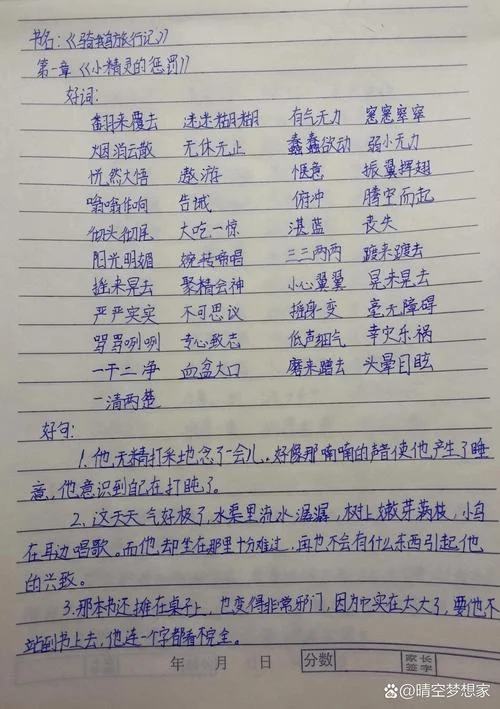 书名:《骑鹅旅行记》
第一章《小精灵的惩罚》
好词:
翻来覆去 迷迷糊糊 有气无力 窸窸窣窣
烟消云散 无休无止 蠢蠢欲动 弱小无力
恍然大悟 遨游 惬意 振翼挥翅
嗡嗡作响 告诫 俯冲 腾空而起
彻头彻尾 大吃一惊 湛蓝 丧失
阳光明媚 婉转啼唱 三三两两 踱来踱去
摇来晃去 聚精会神 小心翼翼 晃来晃去
严严实实 不可思议 摇身一变 毫无障碍
骂骂咧咧 专心致志 低声细气 幸灾乐祸
一干二净 血盆大口 磨来蹭去 头晕目眩
一清两楚
好句:
1.他无精打采地念了一会儿。好像那喃喃的声音使他产生了睡
意,他意识到自己在打盹了。
2、这天天气好极了,水渠里流水潺潺,树上嫩芽满枝,小鸟
在耳边唱歌。而他却坐在那里十分难过,再也不会有什么东西引起他
的兴致。
3.那本书还摊在桌子上,也变得非常邪门,因为它实在太大了,要他不
站到书上去,他连一个字都看不完全。
年 月 日 分数 家长签字
@晴空梦想家